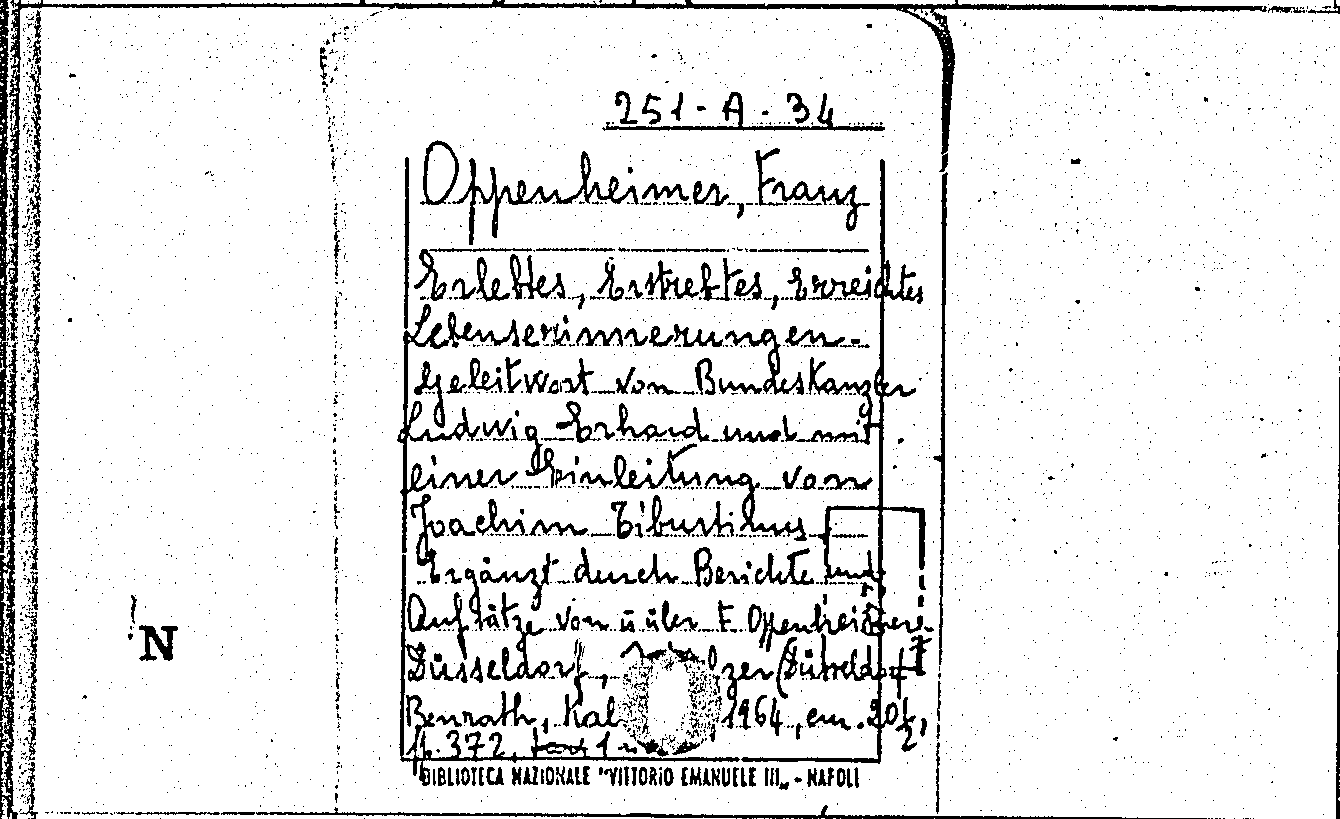 251-A-34
Oppenheimer, Franz
Erlebtes, Erstrebtes, Erreichtes
Lebenserinnerungen.-
Geleitwort von Bundeskanzler
Ludwig Erhard und mit
einer Einleitung von
Joachim Tiburtihus
Ergänzt durch Berichte und
Aufsätze von ü über F. Oppenheimer.
Düsseldorf, lzer (Düsseldorf
Benrath, Kal 1964, cm. 20½,
pp. 372, 1
N
BIBLIOTECA NAZIONALE "VITTORIO EMANUELE III„ - NAPOLI